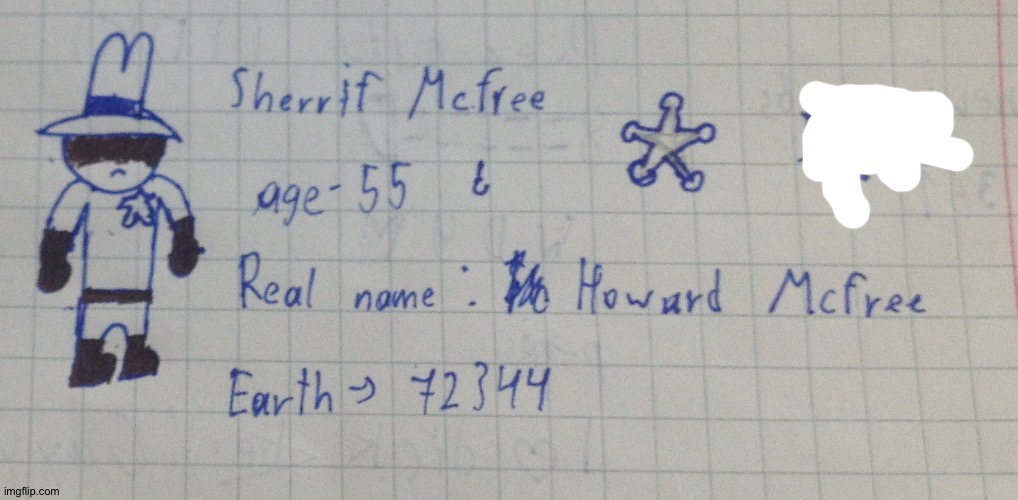 Sherrif Mcfree
age - 55
Real name : Howard Mcfree
Earth → 72344
imgflip.com